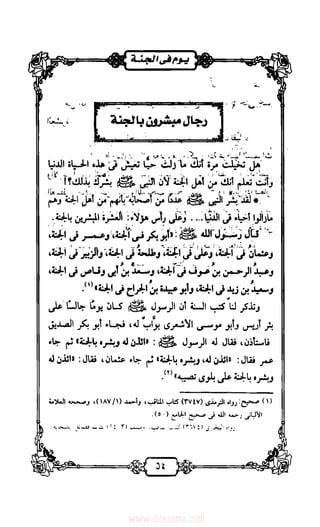 يوم فى الجنة
رجال مبشرون بالجنة
هل تخيلت مرة أنك ما زلت حيًا تعيش فى هذه الحياة الدنيا
وأنت تعلم أنك من أهل الجنة لأن النبى ﷺ بشرك بذلك؟!
* لقد بشر النبى ﷺ عددًا من أصحابه بأنهم من أهل الجنة وهم
مازالوا أحياء فى الدنيا.... وعلى رأس هؤلاء: العشرة المبشرين بالجنة.
قال رسول الله ﷺ: «أبو بكر فى الجنة، وعمر فى الجنة،
وعثمان فى الجنة، وعلى فى الجنة، وطلحة فى الجنة، والزبير فى الجنة،
وعبد الرحمن بن عوف فى الجنة، وسعد بن أبى وقاص فى الجنة،
وسعيد بن زيد فى الجنة، وأبو عبيدة بن الجراح فى الجنة»(١).
وتذكر لنا كتب السنة أن الرسول ﷺ كان يومًا جالسًا على
بئر أريس وأبو موسى الأشعرى بوابٌ له، فجاء أبو بكر الصديق
فاستأذن، فقال له الرسول ﷺ: «ائذن له وبشره بالجنة» ثم جاء
عمر فقال: «ائذن له، وبشره بالجنة» ثم جاء عثمان، فقال: «ائذن له
وبشره بالجنة على بلوى تصيبه»(٢).
(١) صحيح: رواه الترمذى (٣٧٤٧) كتاب المناقب، وأحمد (١/١٨٧)، وصححه العلامة
الألبانى رحمه الله فى صحيح الجامع (٥٠).
رواه البخارى (٣٦٧٤)
٥٤
www.ibtesama.com